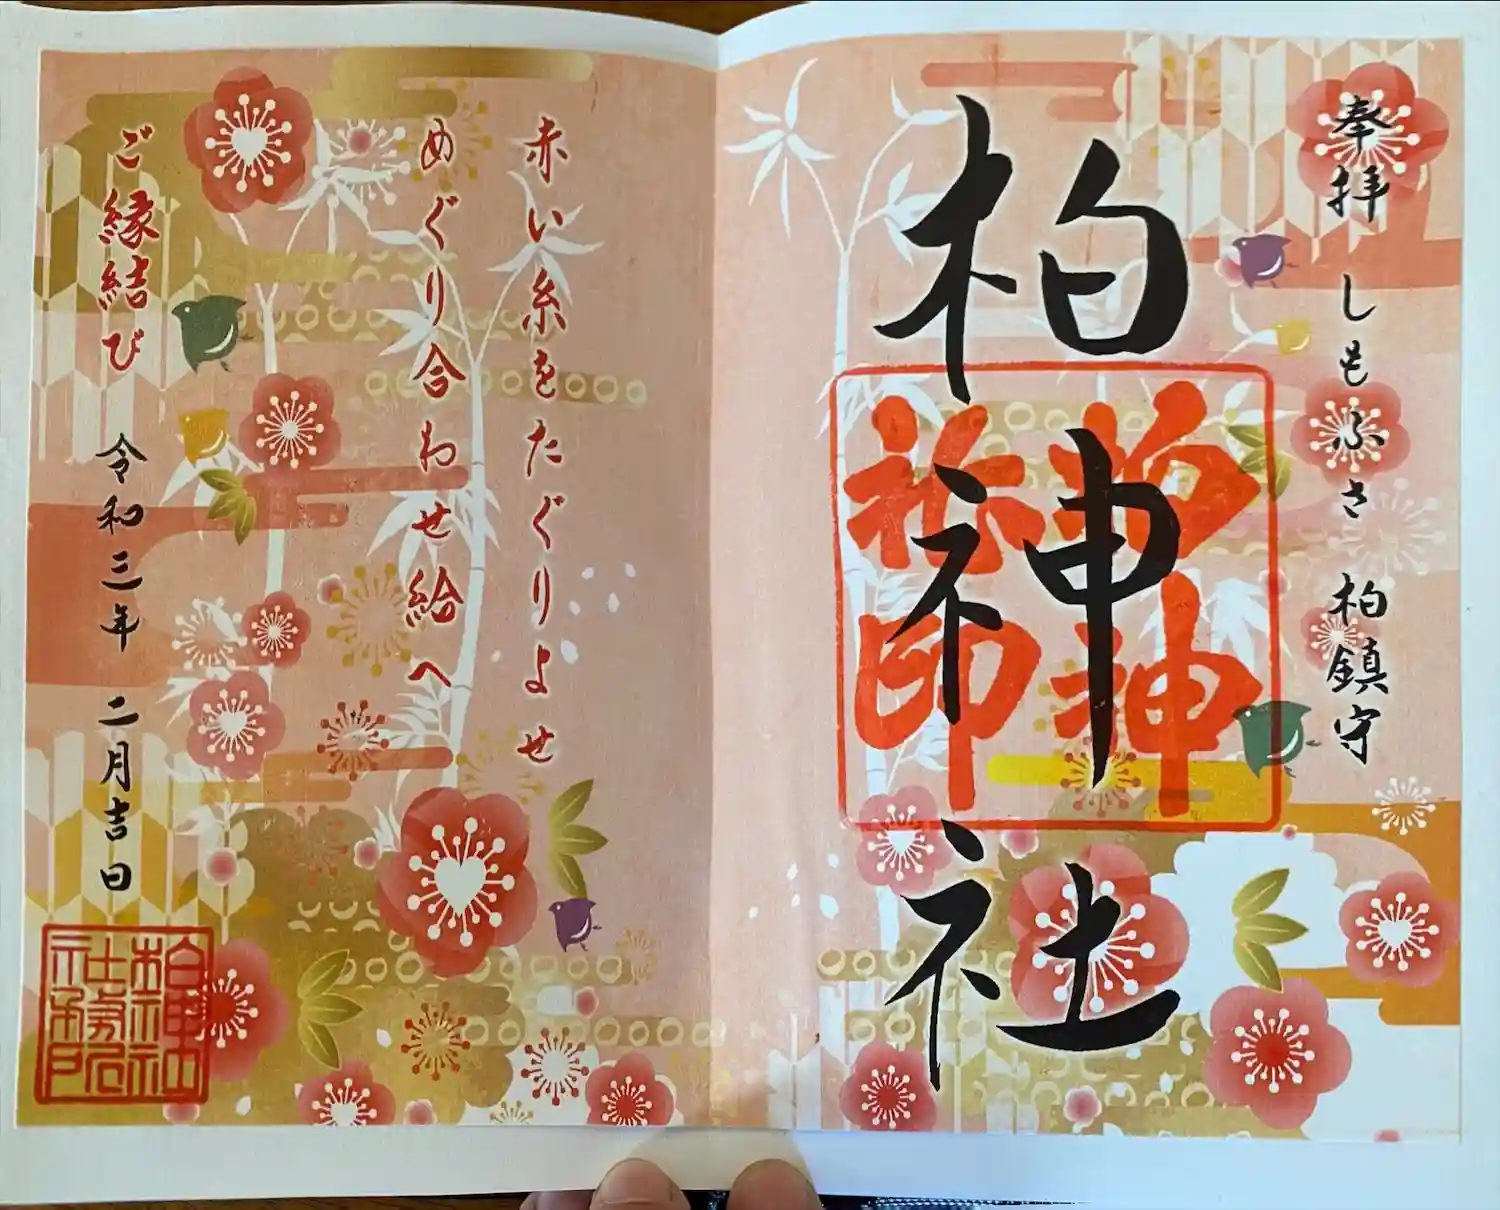 奉拝 しもふさ 柏鎮守
柏神社
柏神社印
赤い糸をたぐりよせ
めぐり合わせ給へ
ご縁結び 令和三年 二月吉日
柏神社
社務所印